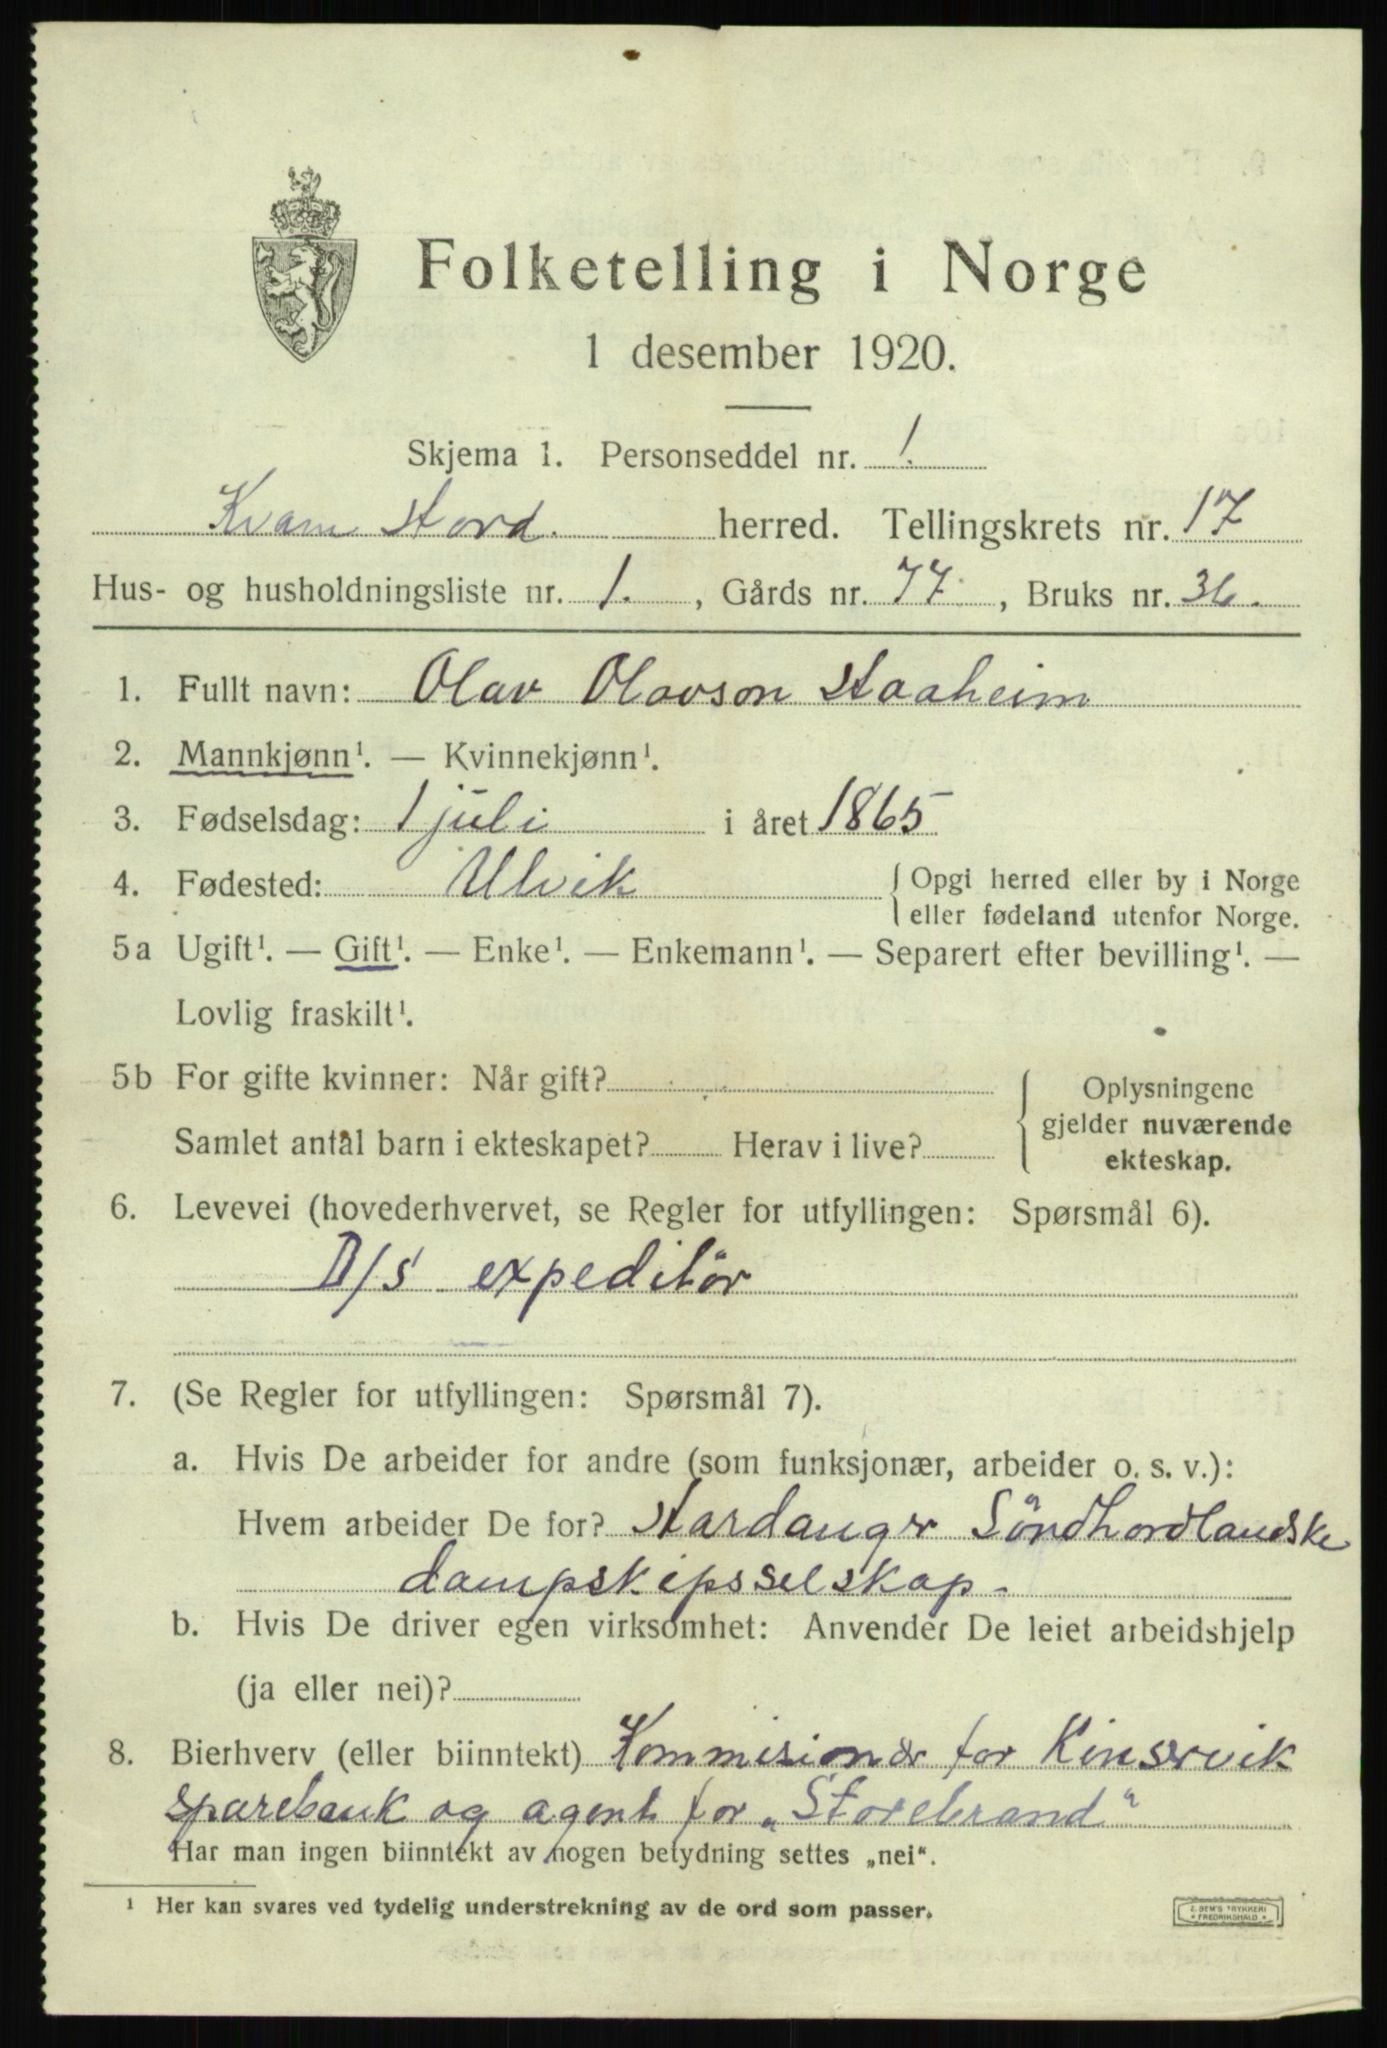 Folketelling i Norge
1 desember 1920.
Skjema 1. Personseddel nr. 1.
Kvam Hord. herred. Tellingskrets nr. 17
Hus- og husholdningsliste nr. 1. , Gårds nr. 77. , Bruks nr. 36.
1. Fullt navn: Olav Olavson Haaheim
2. Mannkjønn¹. — Kvinnekjønn¹.
3. Fødselsdag: 1 juli i året 1865
4. Fødested: Ulvik { Opgi herred eller by i Norge
eller fødeland utenfor Norge.
5a Ugift¹. — Gift¹. — Enke¹. — Enkemann¹. — Separert efter bevilling¹. —
Lovlig fraskilt¹.
5b For gifte kvinner: Når gift? { Oplysningene
gjelder nuværende
Samlet antal barn i ekteskapet? Herav i live? ekteskap.
6. Levevei (hovederhvervet, se Regler for utfyllingen: Spørsmål 6).
D/s expeditör
7. (Se Regler for utfyllingen: Spørsmål 7).
a. Hvis De arbeider for andre (som funksjonær, arbeider o. s. v.):
Hvem arbeider De for? Hardanger Söndhordlandske
dampskipsselskap.
b. Hvis De driver egen virksomhet: Anvender De leiet arbeidshjelp
(ja eller nei)?
8. Bierhverv (eller biinntekt) Kommisionær for Kinservik
sparebank og agent for „Storebrand"
Har man ingen biinntekt av nogen betydning settes „nei".
¹ Her kan svares ved tydelig understrekning av de ord som passer.
E. SEM'S TRYKKERI
FREDRIKSHALD